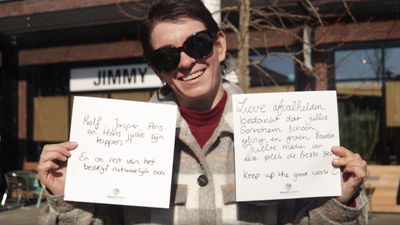 JIMMY
Rolf, Jasper, Ans
en Hans jullie zijn
toppers
En de rest van het
bedrijf natuurlijk ook
Lieve afvalhelden
bedankt dat jullie
Gorinchem schoon,
veilig en groen houden
Jullie maken van
deze plek de beste
Keep up the good work